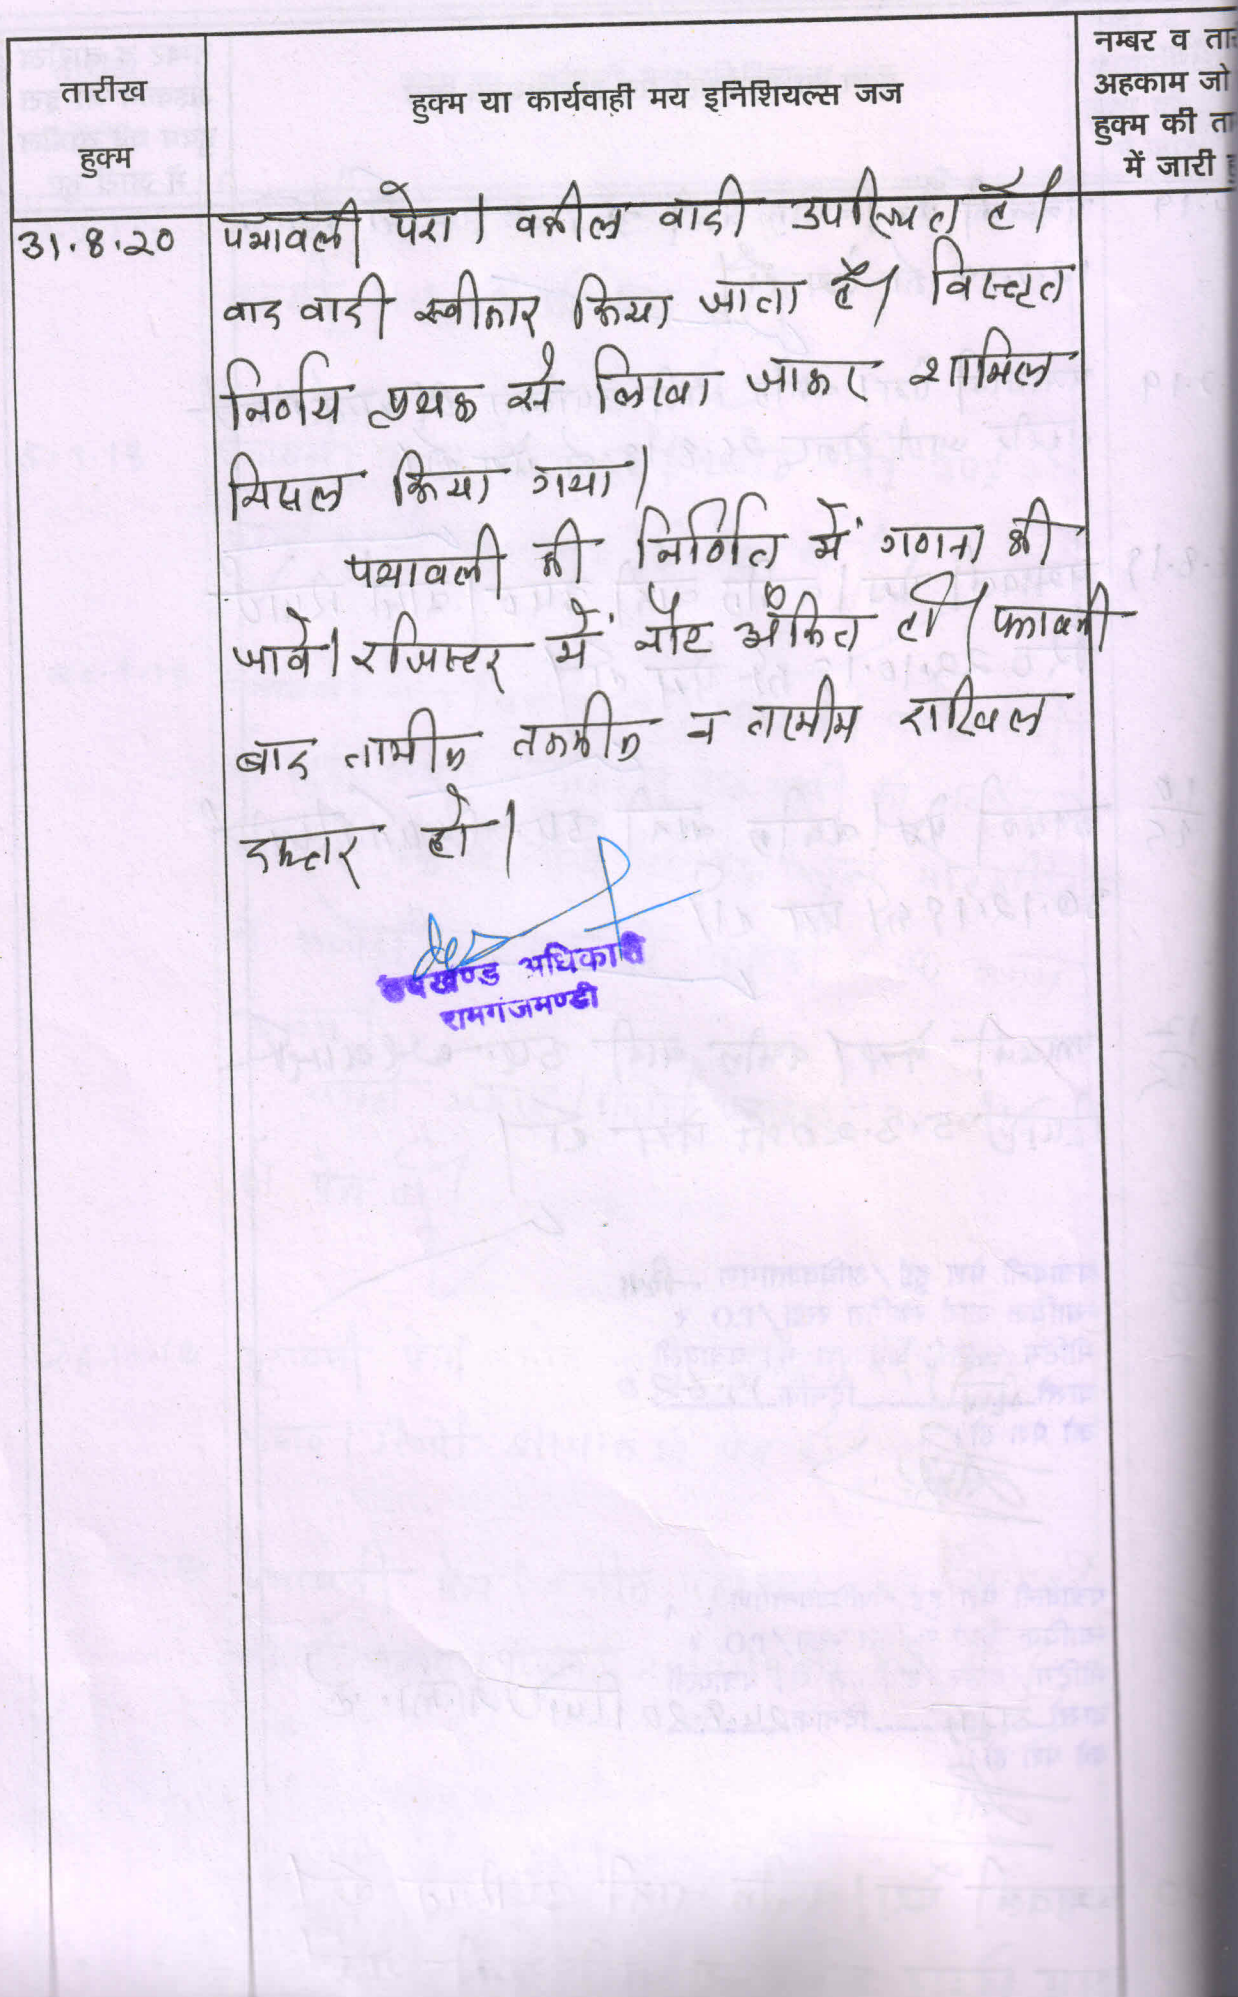 तारीख
हुक्म
हुक्म या कार्यवाही मय इनिशियल्स जज
नम्बर व ता
अहकाम जो
हुक्म की ता
में जारी
31.8.20
पत्रावली पेश। वकील वादी उपस्थित है।
वाद वादी स्वीकार किया जाता है। विस्तृत
निर्णय पृथक से लिखा जाकर शामिल
मिसल किया गया।
पत्रावली की निर्णित में गणना की
जावे। रजिस्टर में नोट अंकित हो। पत्रावली
बाद तामील तकमील व तरमीम दाखिल
दफ्तर हो।
उपखण्ड अधिकारी
रामगंजमण्डी